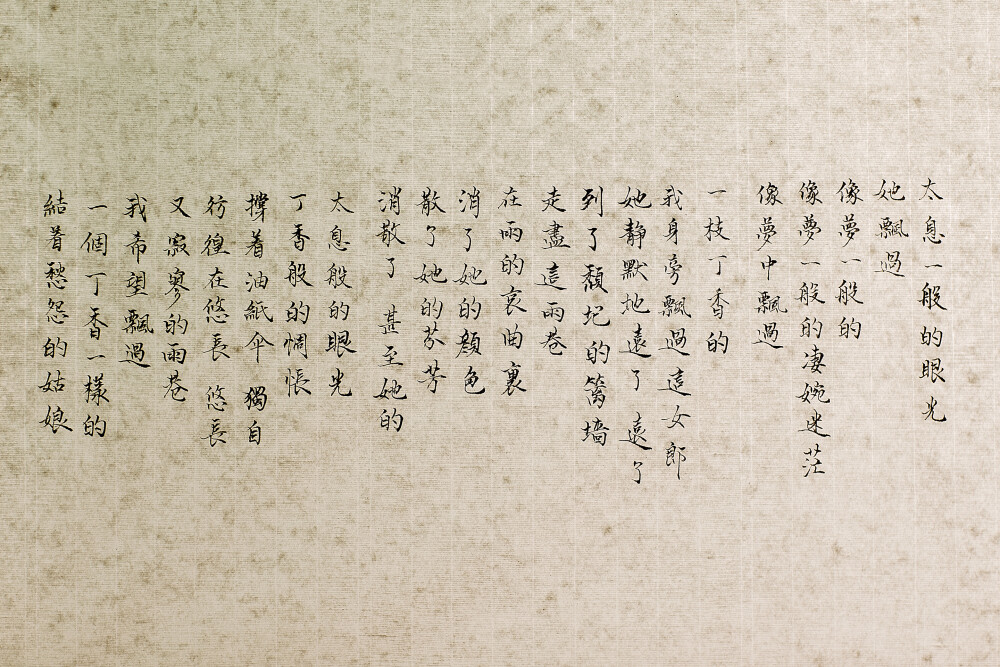 太息一般的眼光
她飄過
像夢一般的
像夢一般的凄婉迷茫
像夢中飄過
一枝丁香的
我身旁飄過這女郎
她静默地遠了 遠了
到了頹圮的篱墙
走盡這雨巷
在雨的哀曲裏
消了她的顔色
散了她的芬芳
消散了 甚至她的
太息般的眼光
丁香般的惆悵
撑着油紙伞 獨自
彷徨在悠長 悠長
又寂寥的雨巷
我希望飄過
一個丁香一樣的
結着愁怨的姑娘